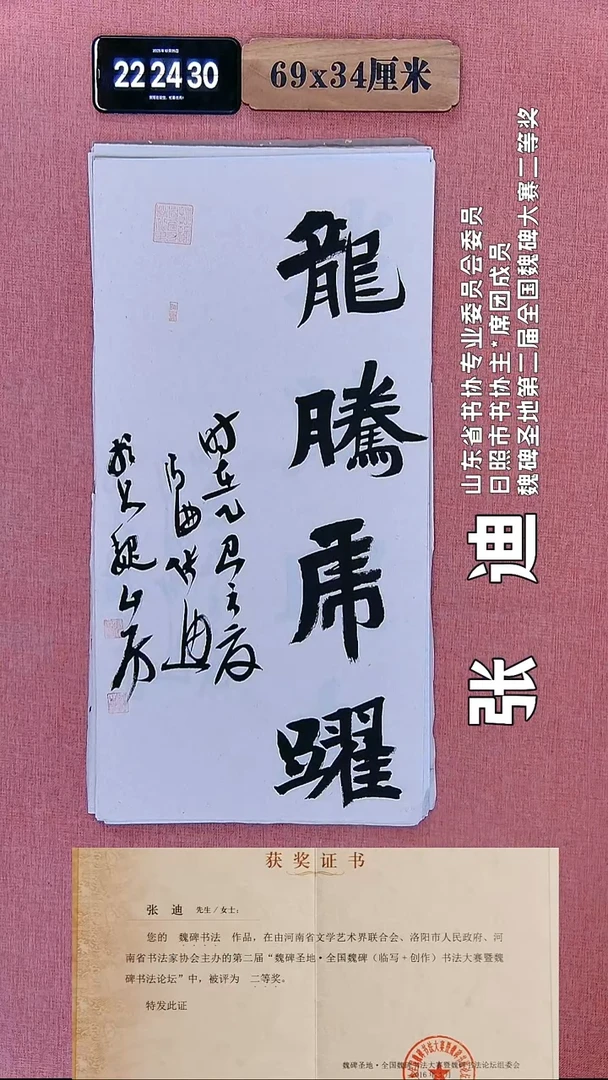 2025年
22 24 30
69x34厘米
龍騰虎躍
时在乙巳之夏
张迪
魏
山东省书协专业委员会委员
日照市书协主*席团成员
魏碑圣地第二届全国魏碑大赛二等奖
张 迪
获奖证书
张 迪 先生/女士：
您的 魏碑书法 作品，在由河南省文学艺术界联合会、洛阳市人民政府、河
南省书法家协会主办的第二届“魏碑圣地·全国魏碑（临写+创作）书法大赛暨魏
碑书法论坛”中，被评为 二等奖。
特发此证
魏碑圣地·全国魏碑书法大赛暨魏碑书法论坛组委会